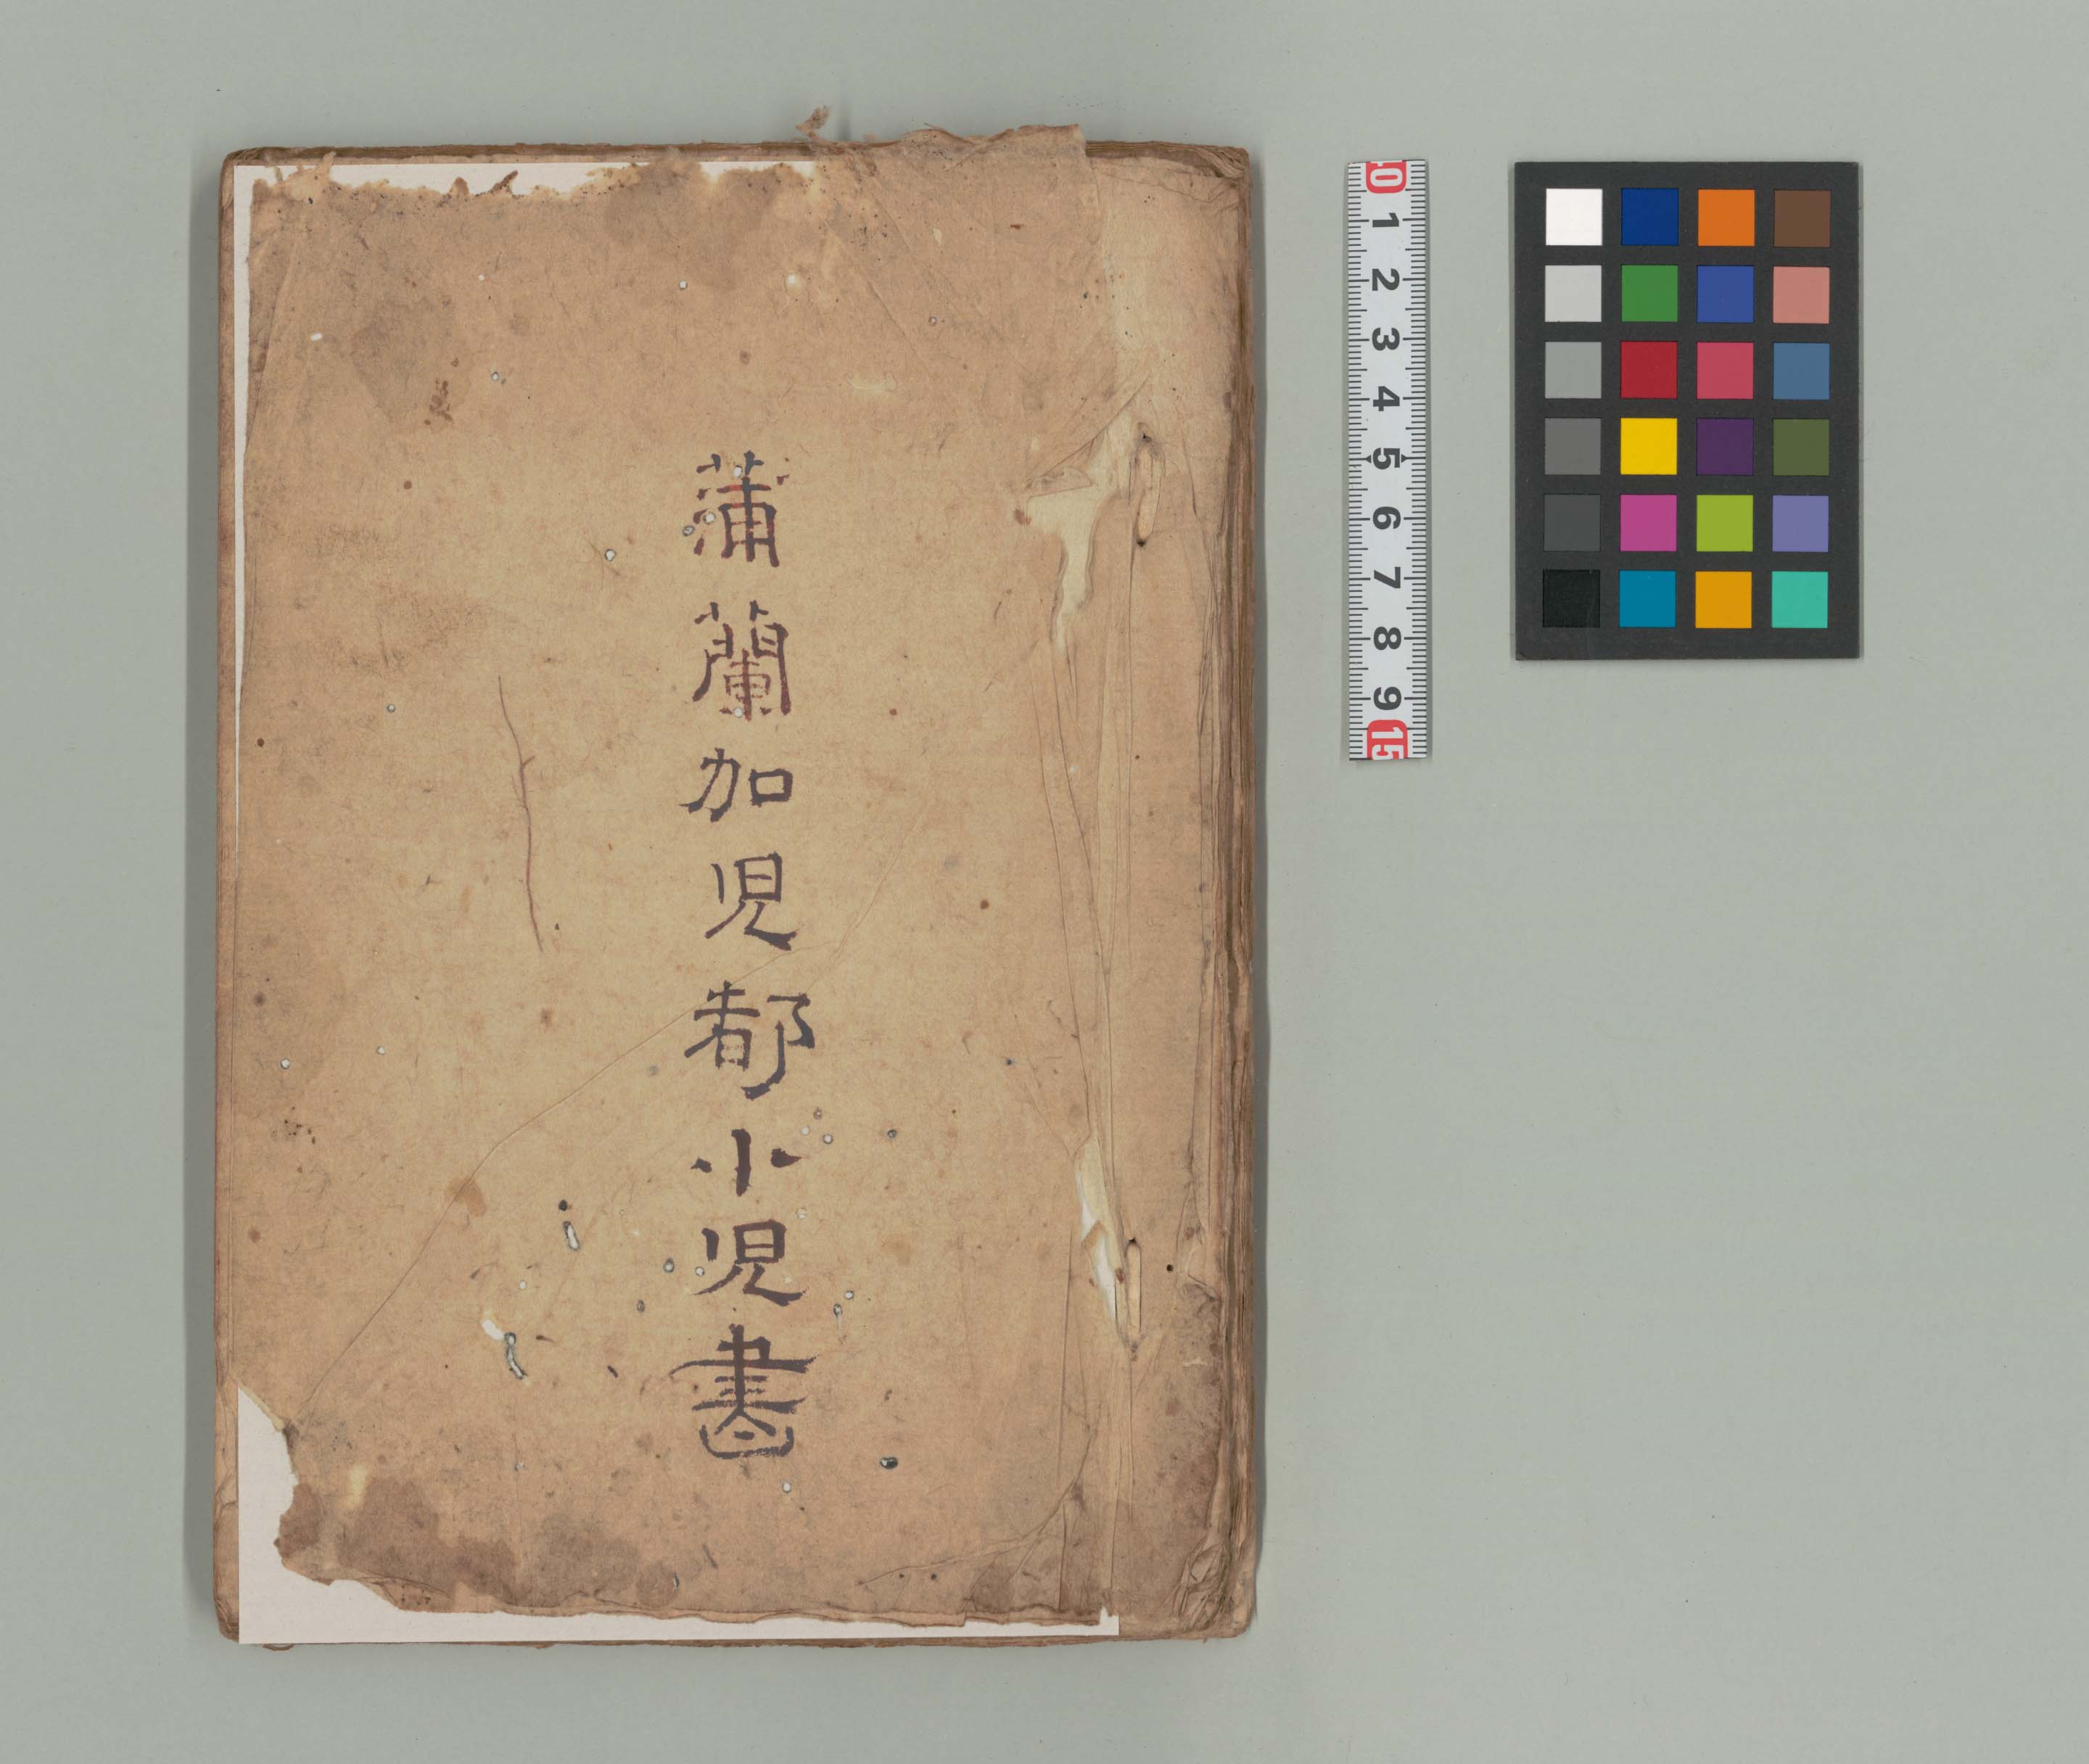 蒲蘭加児都小児書
10
1
2
3
4
5
6
7
8
9
15